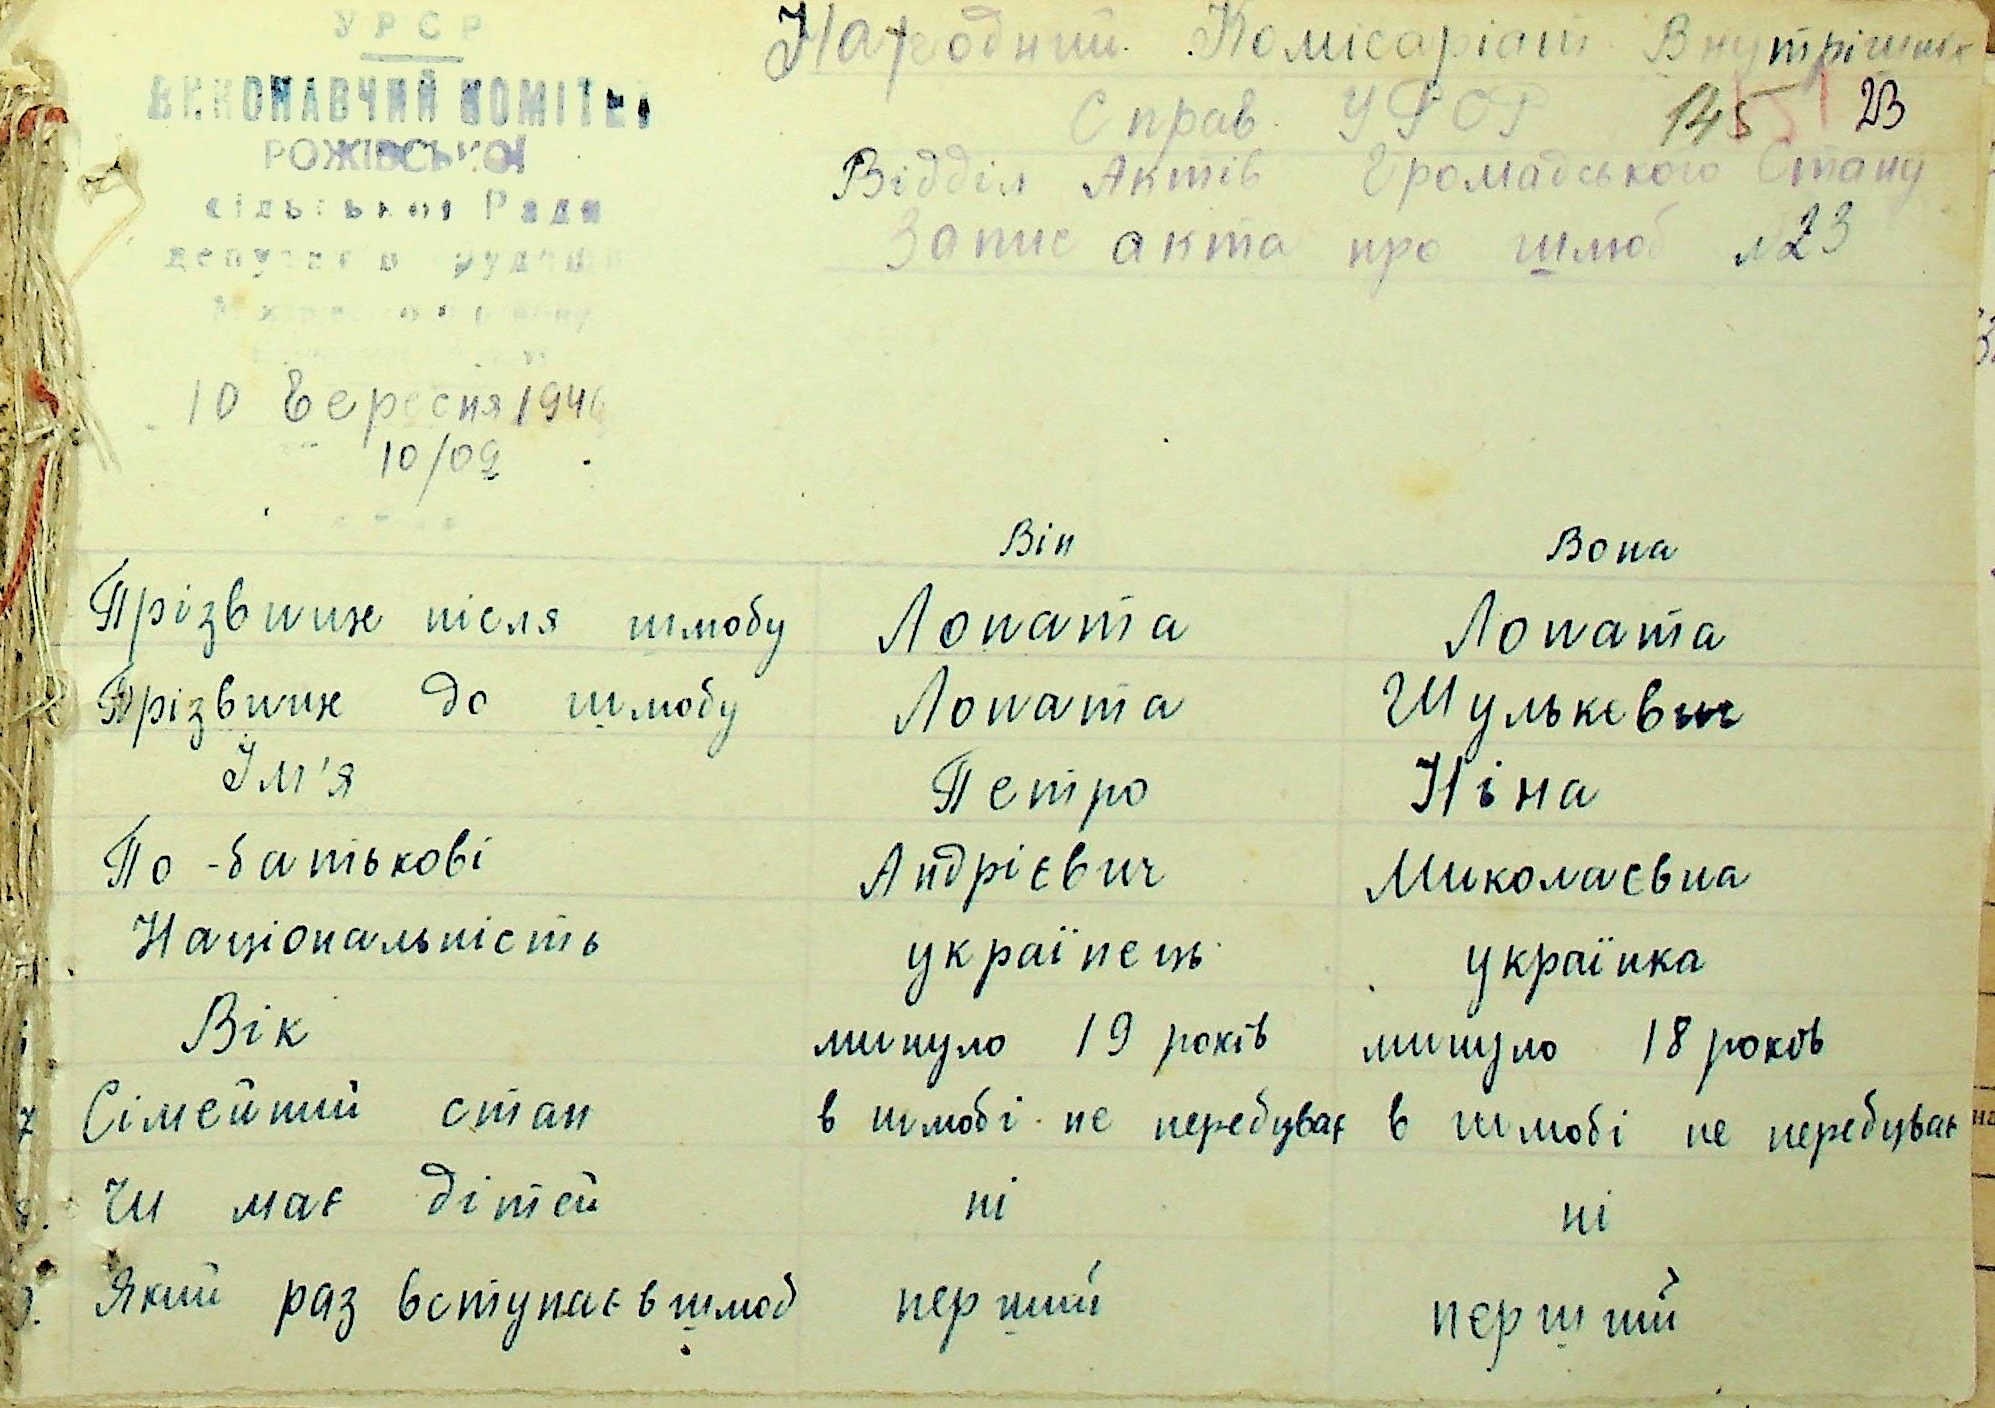 УРСР
ВИКОНАВЧИЙ КОМІТЕТ
РОЖІВСЬКОЇ
сільської Ради
депутатів трудящих
10 Вересня 1946
10/09
Народний Комісаріат Внутрішніх
Справ УРСР 145 23
Відділ Актів Громадського Стану
Запис акта про шлюб №23
Він Вона
Прізвище після шлюбу Лопата Лопата
Прізвище до шлюбу Лопата Шулькевич
Ім'я Петро Ніна
По-батькові Андрієвич Миколаєвна
Національність українець українка
Вік минуло 19 років минуло 18 років
7 Сімейний стан в шлюбі не перебуває в шлюбі не перебуває
8. Чи має дітей ні ні
9. Який раз вступає в шлюб перший перший